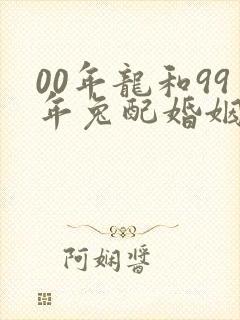 00年龍和99
年兔配婚姻
阿嫻醬